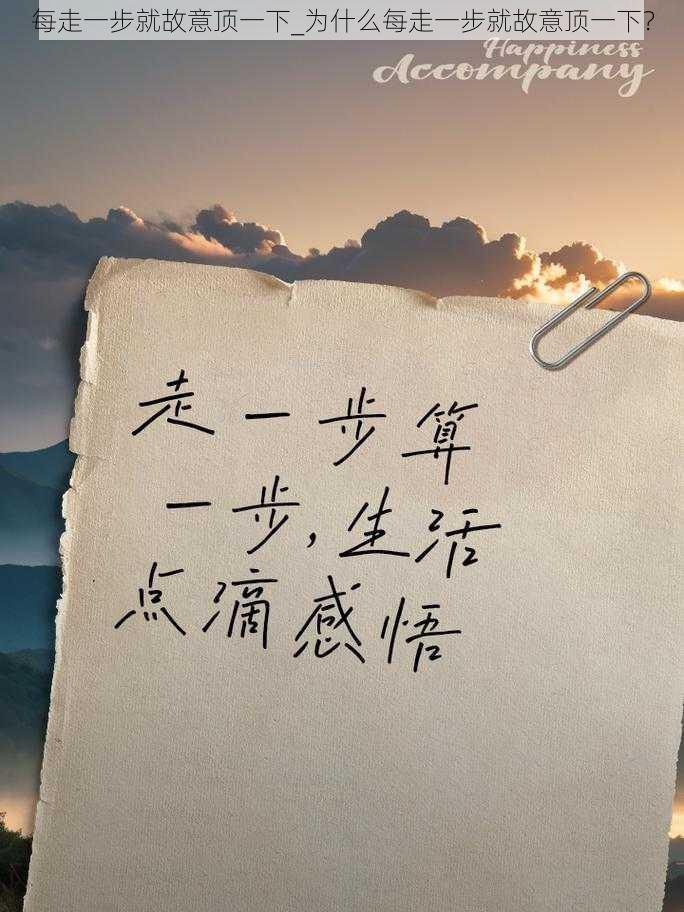 每走一步就故意顶一下_为什么每走一步就故意顶一下?
Happiness
Accompany
走一步算
一步,生活
点滴感悟